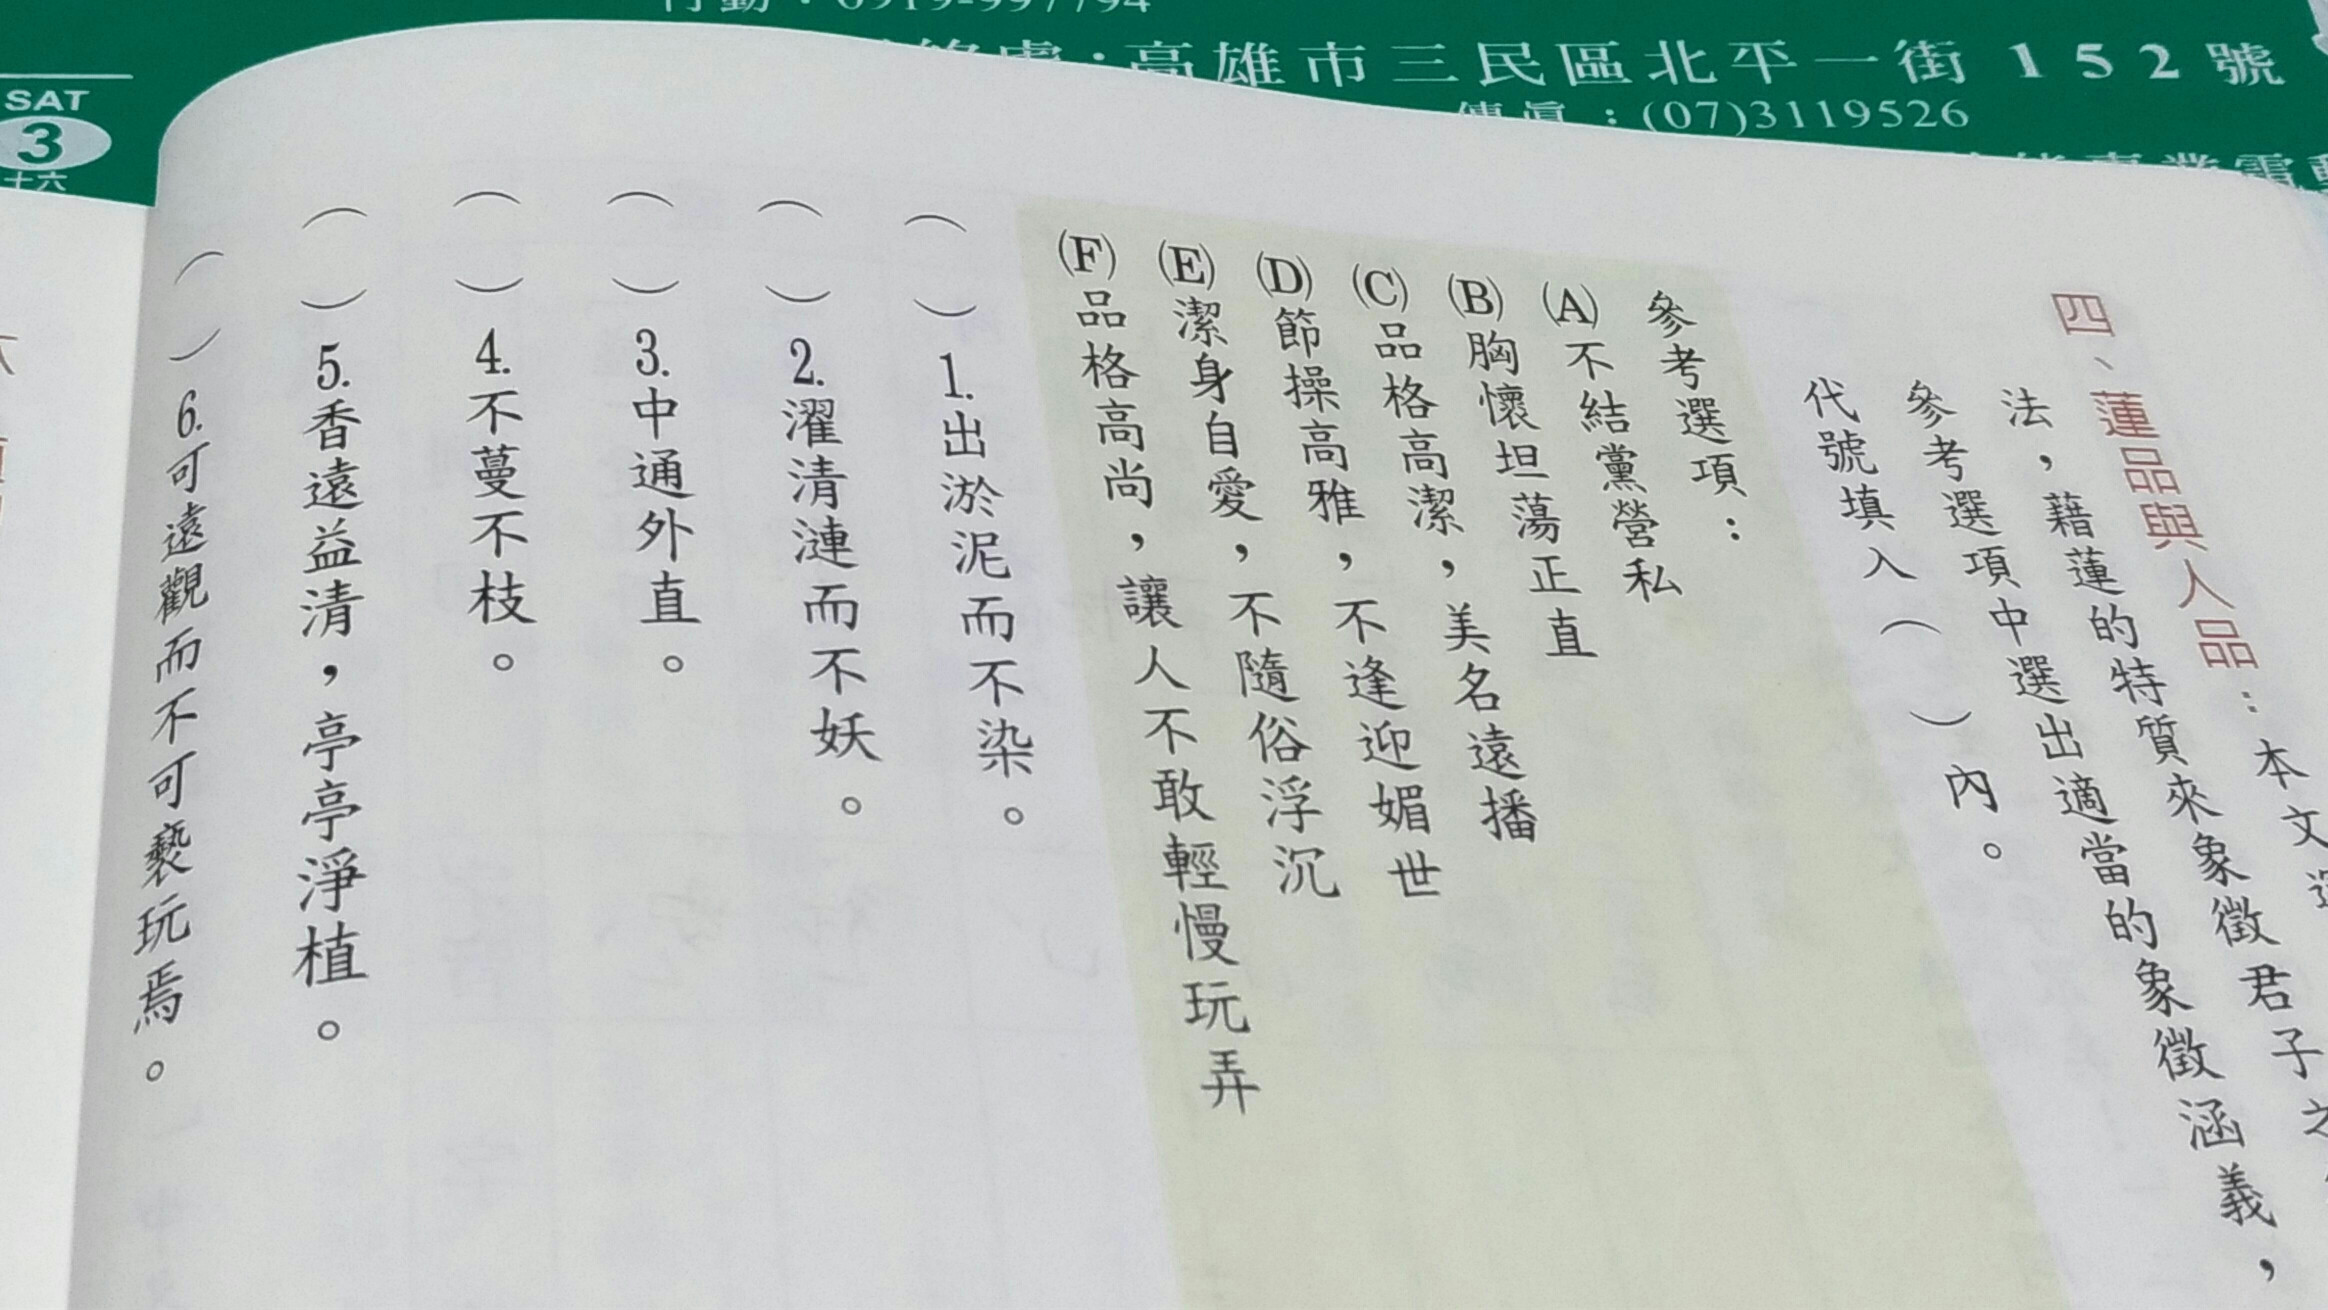 高雄市三民區北平一街152號
(07)3119526
SAT
3
十六
四、蓮品與人品：本文
法，藉蓮的特質來象徵君子之
參考選項中選出適當的象徵涵義，
代號填入（ ）內。
參考選項：
(A)不結黨營私
(B)胸懷坦蕩正直
(C)品格高潔，美名遠播
(D)節操高雅，不逢迎媚世
(E)潔身自愛，不隨俗浮沉
(F)品格高尚，讓人不敢輕慢玩弄
（ ）1.出淤泥而不染。
（ ）2.濯清漣而不妖。
（ ）3.中通外直。
（ ）4.不蔓不枝。
（ ）5.香遠益清，亭亭淨植。
（ ）6.可遠觀而不可褻玩焉。